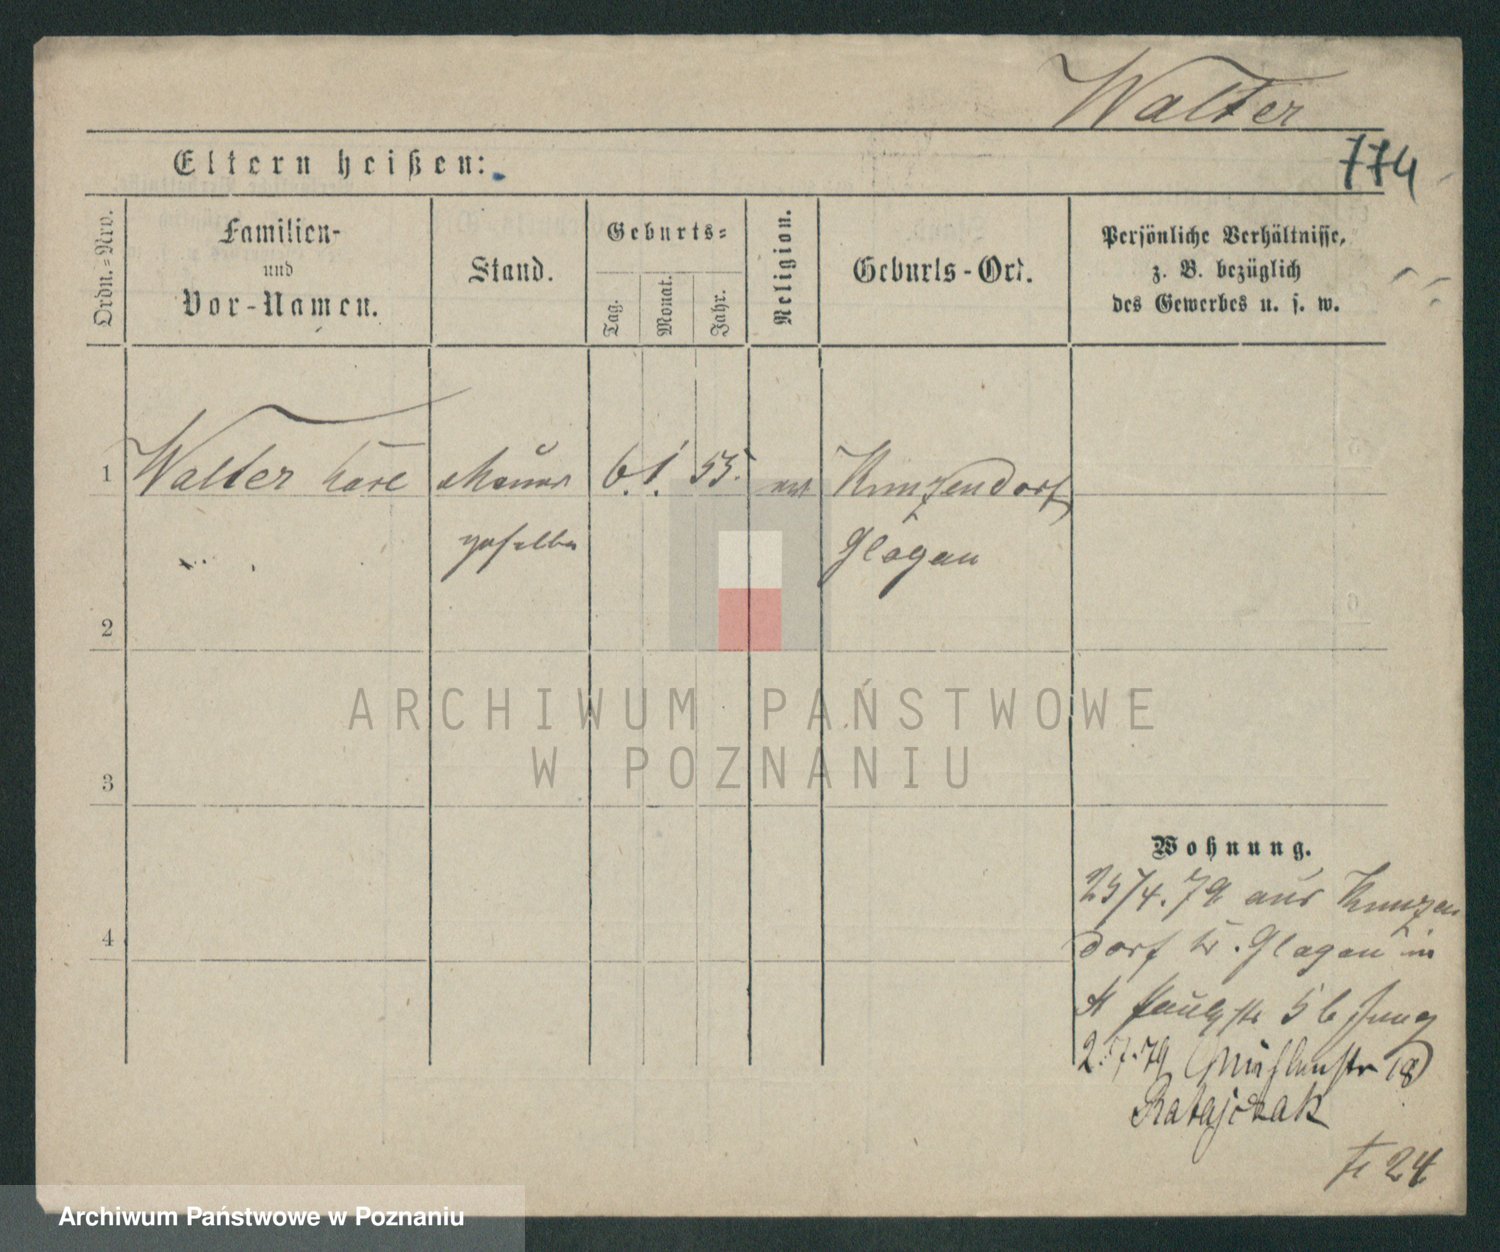 Walter
774
Eltern heißen:
Ordn.-Nro.
Familien-
und
Vor-Namen.
Stand.
Geburts-
Tag.
Monat.
Jahr.
Religion.
Geburts-Ort.
Persönliche Verhältnisse,
z. B. bezüglich
des Gewerbes u. s. w.
1 Walter Karl Maurer 6. 1. 55. Kunzendorf
Glogau
2
3
4
ARCHIWUM PAŃSTWOWE
W POZNANIU
Wohnung.
25/4.79 aus Kunzen
dorf Kr. Glogau in
5 b Jung
2.7.79 Mühlenstr 18
Ratajczak
24
Archiwum Państwowe w Poznaniu